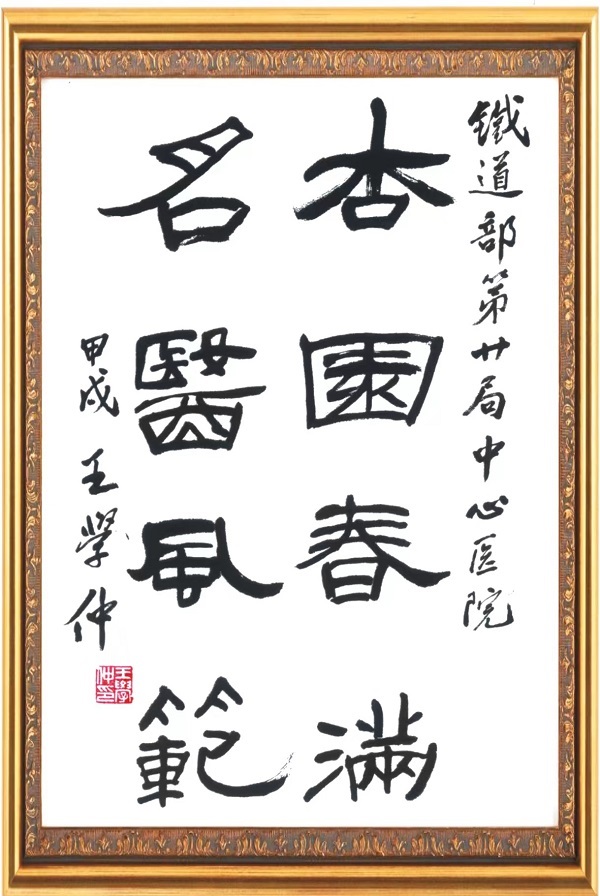 鐵道部第廿局中心医院
杏園春滿
名醫風範
甲戌 王學仲
王學仲印